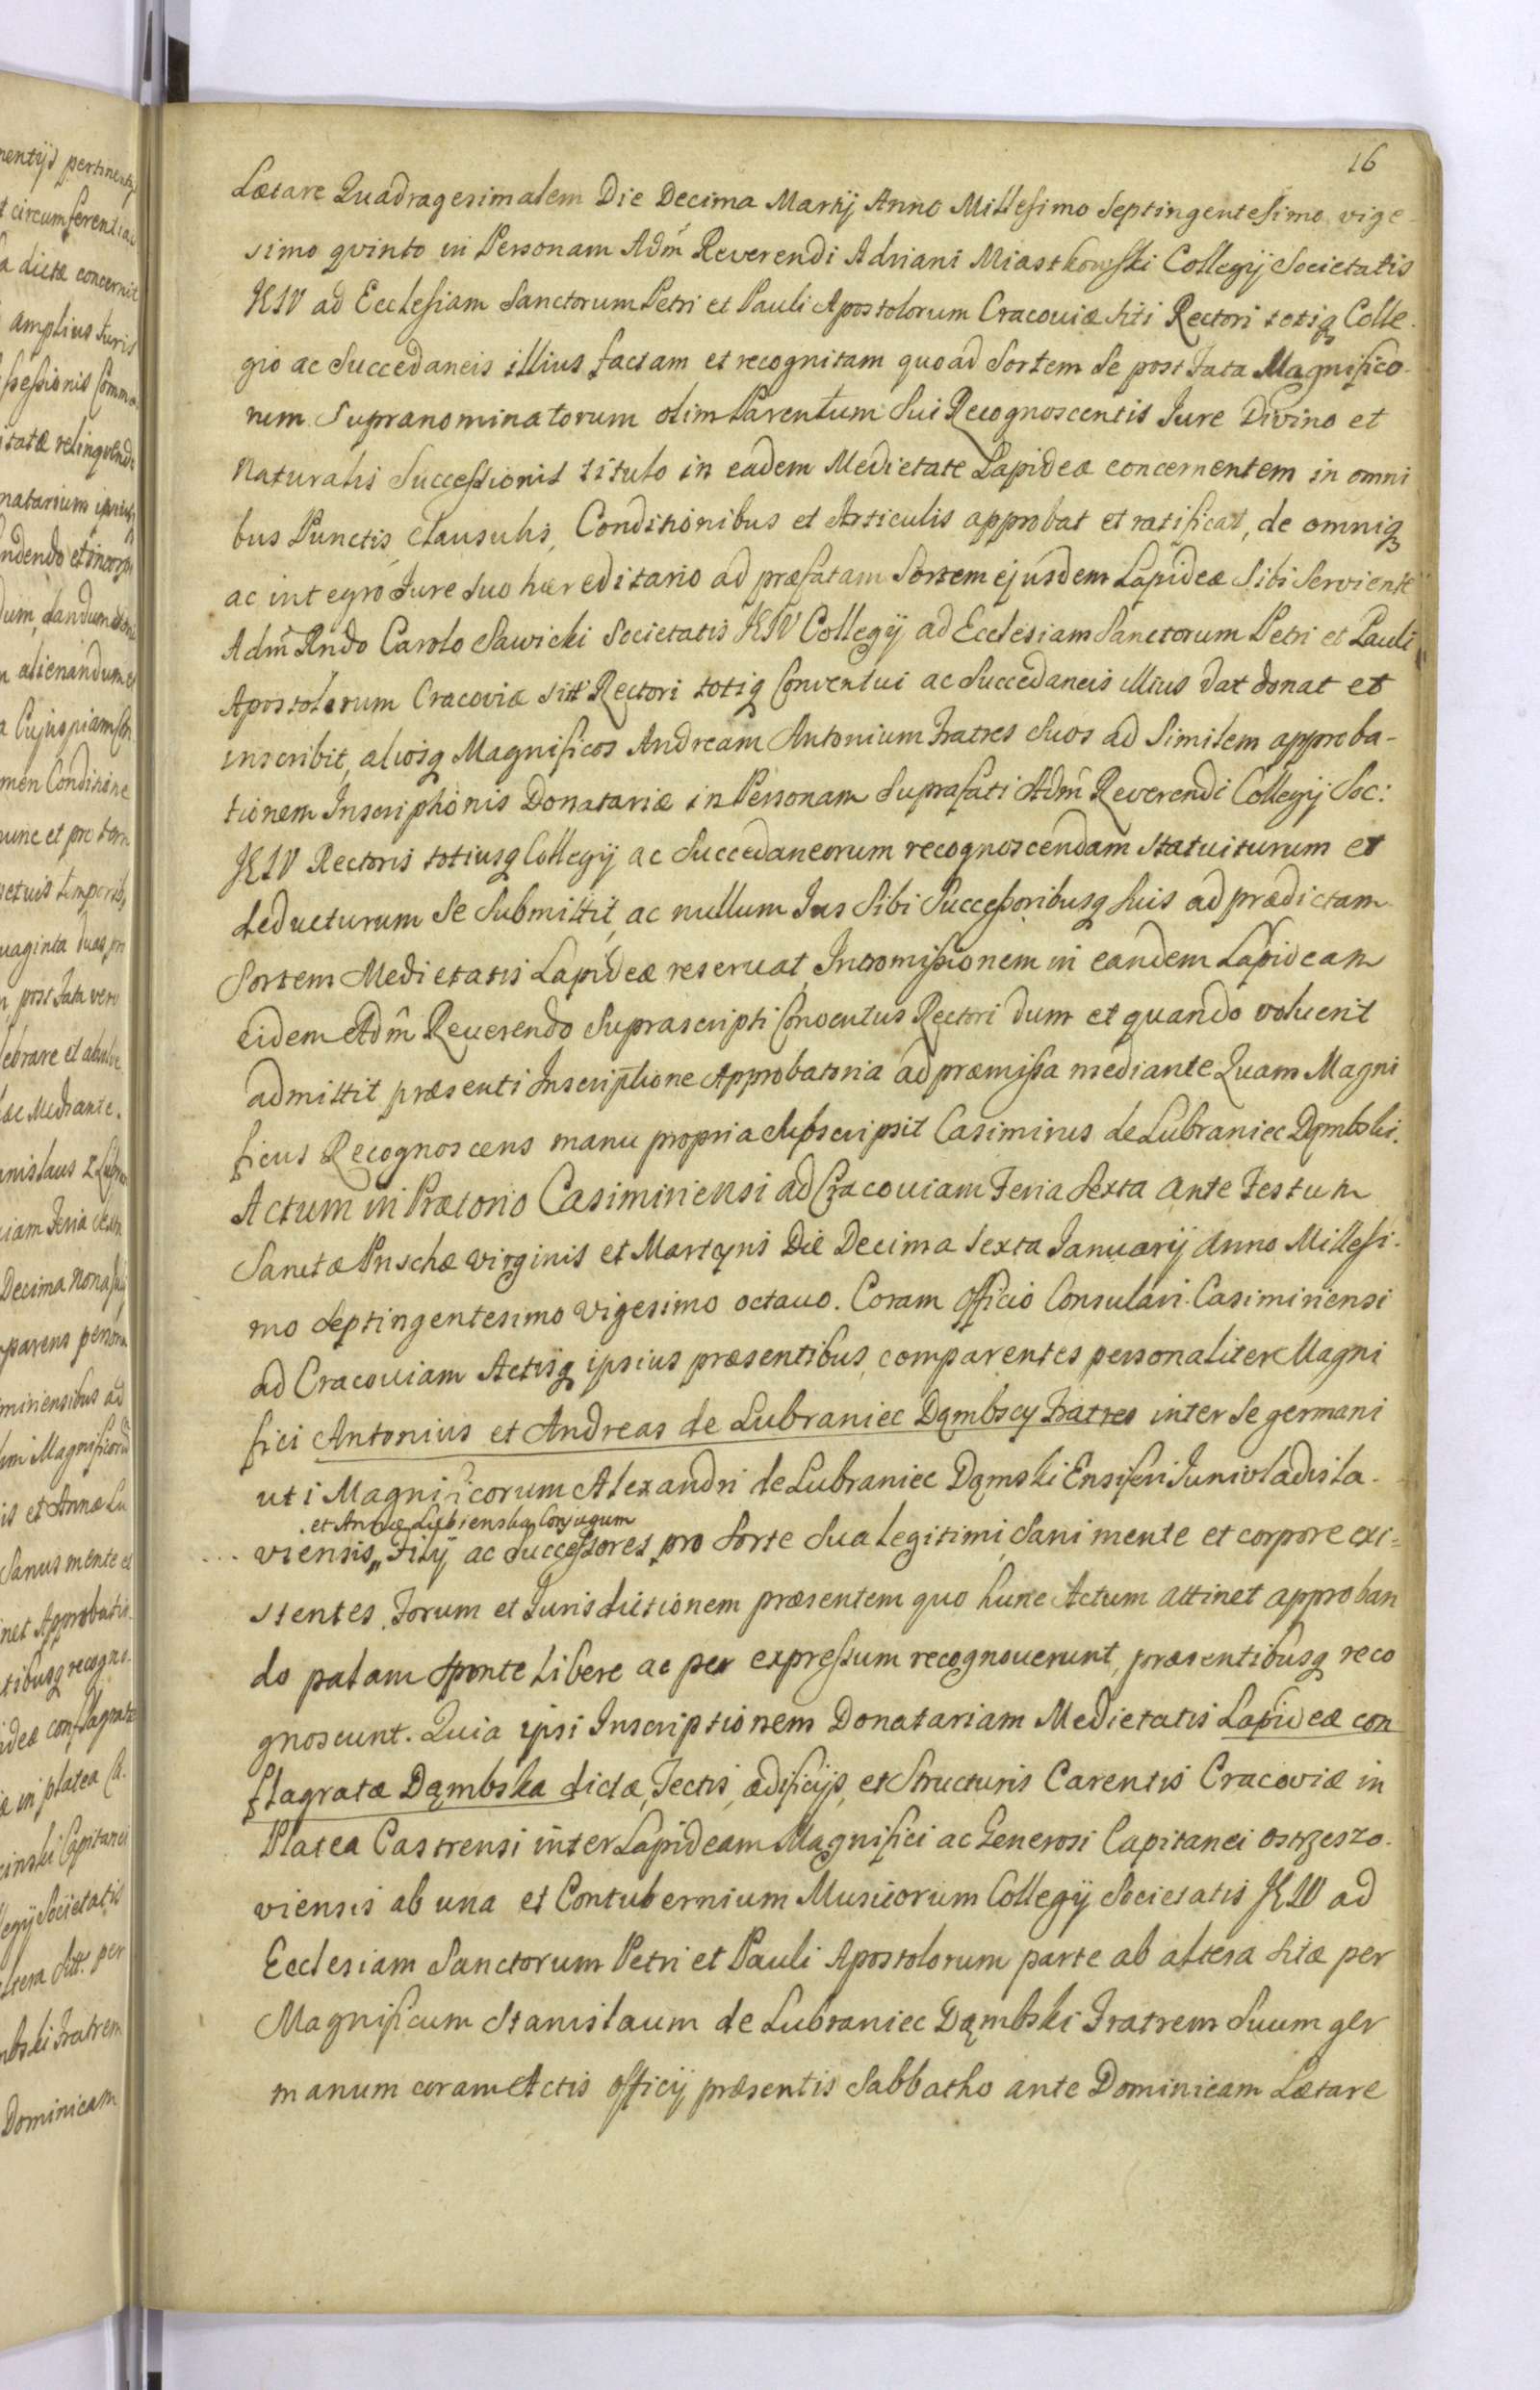 16
Lætare Quadragesimalem Die Decima Martij Anno Millesimo Septingentesimo vige-
simo qvinto in Personam Adm̃ Reverendi Adriani Miastkowski Collegij Societatis
JESV ad Ecclesiam Sanctorum Petri et Pauli Apostolorum Cracouiæ Siti Rectori totiq3 Colle-
gio ac Succedaneis illius factam et recognitam quoad Sortem Se post Fata Magnifico-
rum Supranominatorum olim Parentum Sui Recognoscentis Jure Divino et
Naturalis Successionis titulo in eadem Medietate Lapideæ concernentem in omni
bus Punctis, Clausulis, Conditionibus et Articulis approbat et ratificat, de omniq3
ac integro Jure Suo hæreditario ad præfatam Sortem ejusdem Lapideæ Sibi Serviente
Adm̃ Rndo Carolo Sawicki Societatis JESV Collegij ad Ecclesiam Sanctorum Petri et Pauli
Apostolorum Cracoviæ sitt Rectori totiq3 Conventui ac Succedaneis illius dat donat et
inscribit, aliosq3 Magnificos Andream Antonium Fratres Suos ad Similem approba-
tionem Inscriptionis Donatariæ in Personam Suprafati Adm̃ Reverendi Collegij Soc:
JESV Rectoris totiusq3 Collegij ac Succedaneorum recognoscendam Statuiturum et
deducturum Se Submittit, ac nullum Jus Sibi Successoribusq3 Suis ad prædictam
Sortem Medietatis Lapideæ reseruat, Intromissionem in eandem Lapideam
eidem Adm̃ Reuerendo Suprascripti Conventus Rectori dum et quando voluerit
admittit præsenti Inscriptione Approbatoria ad præmissa mediante. Quam Magni
ficus Recognoscens manu propria Subscripsit Casimirus de Lubraniec Dąmbski.
Actum in Prætorio Casimiriensi ad Cracouiam Feria Sexta ante Festum
Sanctæ Priscæ virginis et Martyris Die Decima Sexta Januarij Anno Millesi-
mo Septingentesimo Vigesimo octauo. Coram Officio Consulari Casimiriensi
ad Cracouiam Actisq3 ipsius præsentibus comparentes personaliter Magni
fici Antonius et Andreas de Lubraniec Dąmbscy Fratres inter Se germani
uti Magnificorum Alexandri de Lubraniec Dąmski Ensiferi Junivladisla-
et Annæ Lubienska Conjugum
viensis„ Filij ac Successores pro Sorte Sua legitimi, Sani mente et corpore exi-
stentes, Forum et Jurisdictionem præsentem quo hunc Actum attinet approban
do palam Sponte Libere ac per expressum recognouerunt, præsentibusq3 reco
gnoscunt. Quia ipsi Inscriptionem Donatariam Medietatis Lapideæ con
flagratæ Dąmbska dictæ, Tectis, ædificijs, et Structuris Carentis Cracoviæ in
Platea Castrensi inter Lapideam Magnifici ac Generosi Capitanei Ostrzeszo-
viensis ab una et Contubernium Musicorum Collegij Societatis JESV ad
Ecclesiam Sanctorum Petri et Pauli Apostolorum parte ab altera Sitæ per
Magnificum Stanislaum de Lubraniec Dąmbski Fratrem Suum ger
manum coram Actis Officij præsentis Sabbatho ante Dominicam Lætare